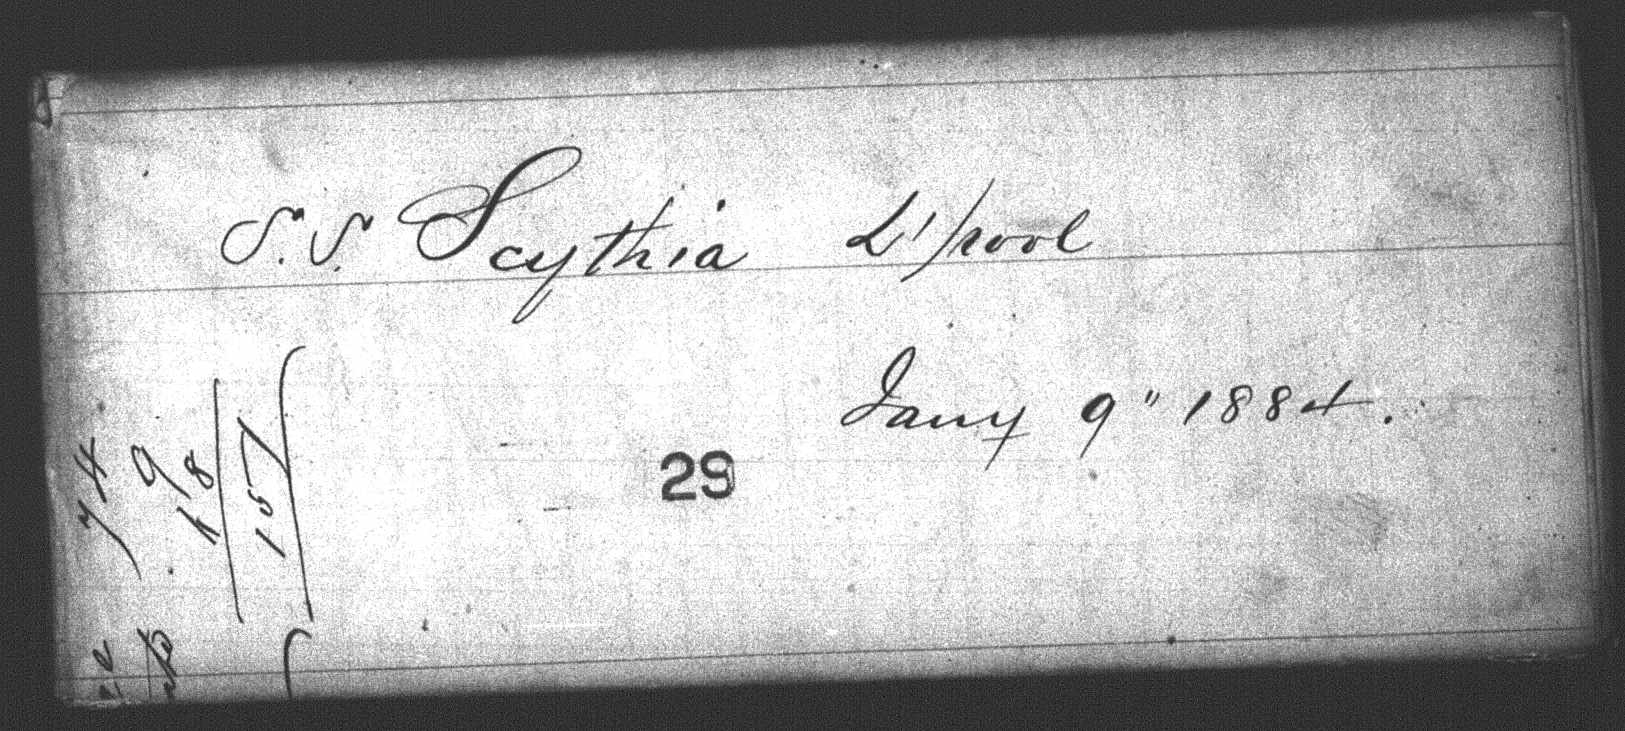 S.S. Scythia L'pool
Jany 9" 1884.
29
74
9
157